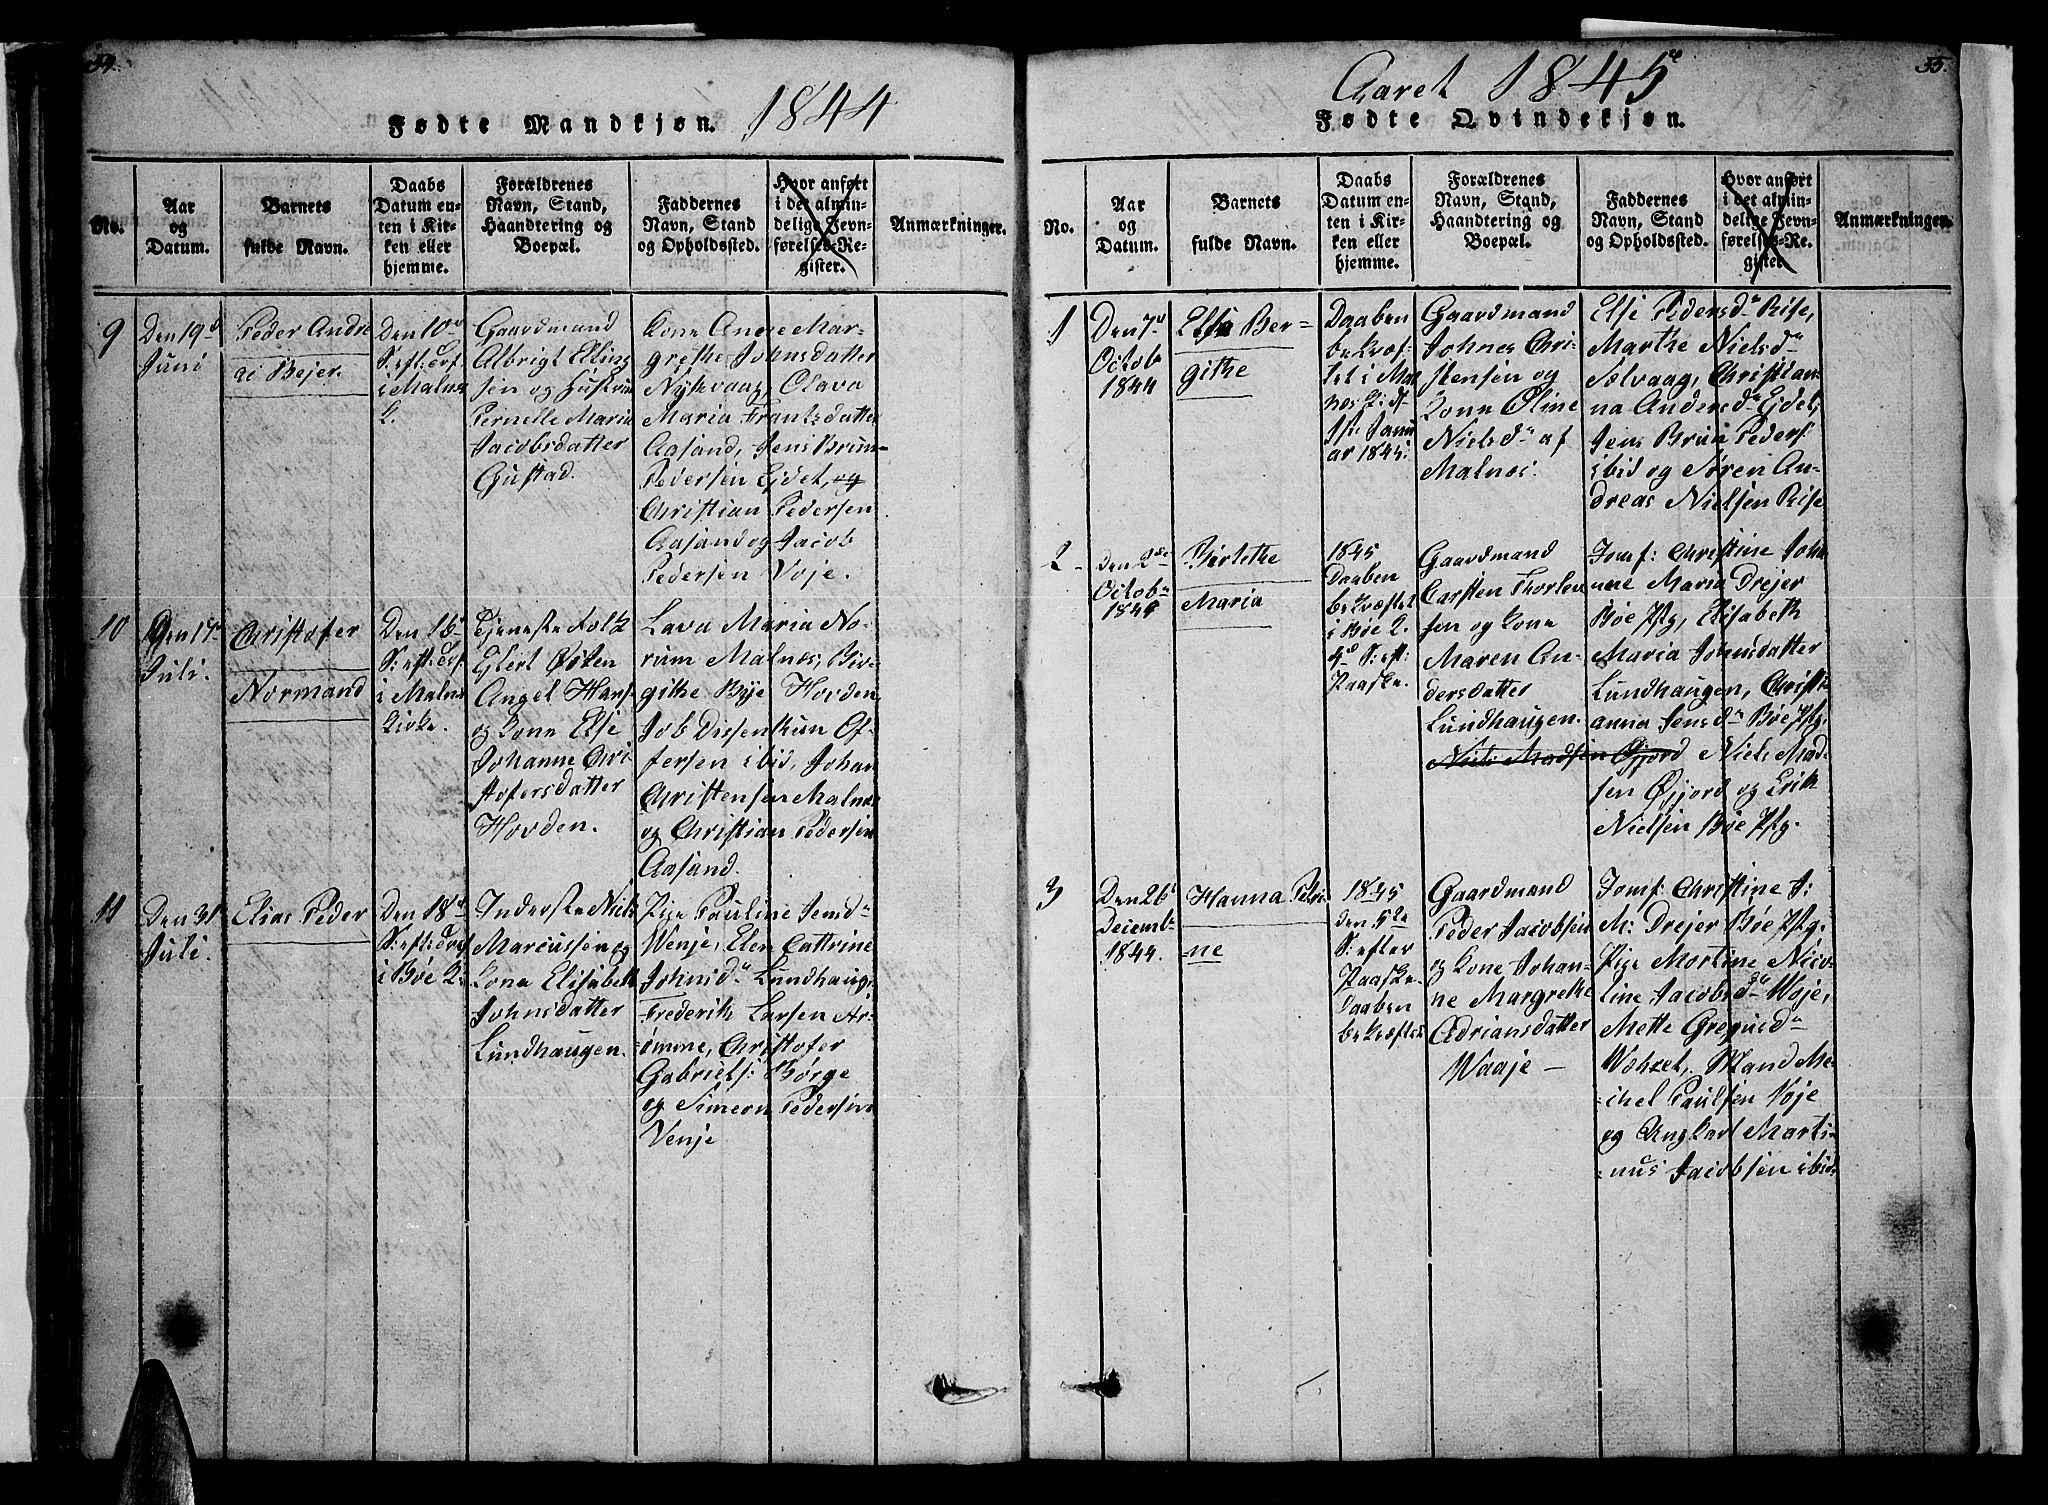 54.
Fødte Mandkjøn. 1844
No.
Aar
og
Datum.
Barnets
fulde Navn.
Daabs
Datum en-
ten i Kir-
ken eller
hjemme.
Forældrenes
Navn, Stand,
Haandtering og
Boepæl.
Faddernes
Navn, Stand
og Opholdssted.
Hvor anført
i det almin-
delige Jevn-
førelses-Re-
gister.
Anmærkninger.
9
Den 19d
Juni
Peder Andre
as Bejer.
Den 10d
S: eft: Tref
i Malnes
K.
Gaardmand
Albrigt Elling
sen og Hustrue
Pernelle Maria
Jacobsdatter
Gustad.
Kone Anne Mar-
grethe Johnsdatter
Nykvaag, Olava
Maria Frantsdatter
Aasand, Jens Bruun
Pedersen Ejdet, og
Christian Pedersen
Aasand og Jacob
Pedersen Voje.
10
Den 17de
Juli.
Christofer
Normand
Den 16d
S: eft: Tref
i Malnes
Kirke.
Tjeneste Folk
Glert Østen
Angel Hars
og Kone Else
Johanne Chri
stofersdatter
Hovden.
Lava Maria No-
rum Malnes, Bir-
githe Bye Hovden
Job Dissenkun Of-
fersen ibid, Johan
Christensen Malnes
og Christian Pedersen
Aasand.
11
Den 31
Juli.
Elias Peder
Den 18d
S: eft: Tref
i Bøe K.
Inderste Niels
Marcussen og
Kone Elisabeth
Johnsdatter
Lundhaugen.
Pige Pauline Jensdr
Venje, Elen Cattrine
Johnsdr Lundhaug,
Frederik Larsen Ar-
=ømme, Christofer
Gabriels: Børge
og Simeon Pedersen
Venje
55.
Aaret 1845
Fødte Qvindekjøn.
No.
Aar
og
Datum.
Barnets
fulde Navn.
Daabs
Datum en-
ten i Kir-
ken eller
hjemme.
Forældrenes
Navn, Stand,
Haandtering og
Boepæl.
Faddernes
Navn, Stand
og Opholdssted.
Hvor anført
i det almin-
delige Jevn-
førelses-Re-
gister.
Anmærkninger.
1
Den 7d
Octob
1844
Else Ber-
githe
Daaben
bekræf-
tet i Mal
nes K: d
1ste Janu
ar 1845.
Gaardmand
Johnes Chri-
stensen og
Kone Oline
Nielsdr af
Malnes.
Else Pedersdr Rise,
Marthe Nielsdr
Sælvaag, Christian-
na Andersdr Ejdet,
Jens Bruun Peders
ibid og Søren An-
dreas Nielsen Rise
2
Den 2de
Octobr
1844
Birtethe
Maria
1845
Daaben
bekræftet
i Bøe K.
4d S: eft:
Paaske.
Gaardmand
Carsten Thorlev
sen og Kone
Maren An-
dersdatter
Lundhaugen.
Jomf: Christine Joha
nne Maria Drejer
Bøe Pstg, Elisabeth
Maria Johnsdatter
Lundhaugen, Christi
anna Jensdr Bøe Pstg.
Niels Madsen Øjord Niels Mad
sen Øjjord og Erik
Nielsen Bøe Pstg.
3
Den 26d
Decemb-
1844.
Hanna Petri-
ne
1845
den 5te
S: efter
Paaske.
Daaben
bekræftet
Gaardmand
Peder Jacobsen
og Kone Johan-
ne Margrethe
Adriansdatter
Waaje –
Jomf: Christine J:
M: Drejer Bøe Pstg.
Pige Mortine Nico-
line Jacobsdr Voje,
Mette Gregusdr
Mand Mi-
=chel Paulsen Voje
og Ungkarl Marti-
=nus Jacobsen ibid